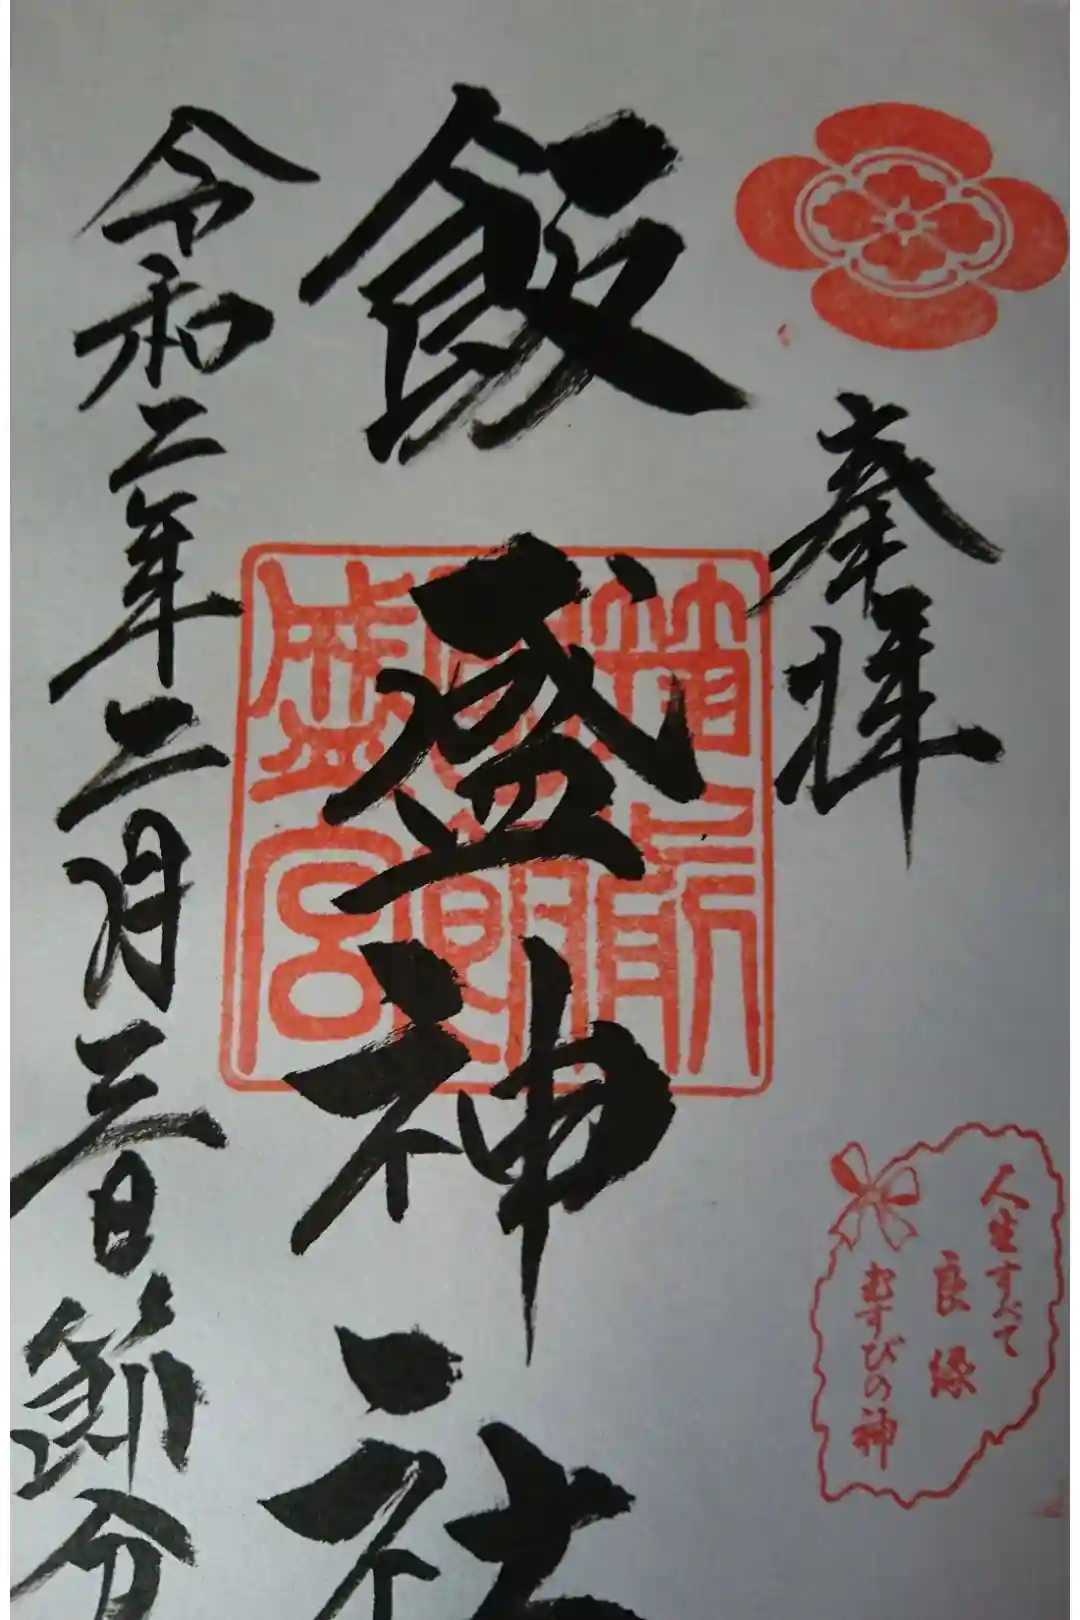 奉拝
人生すべて
良縁
むすびの神
飯盛神社
筑前
盛宮
令和二年二月三日節分